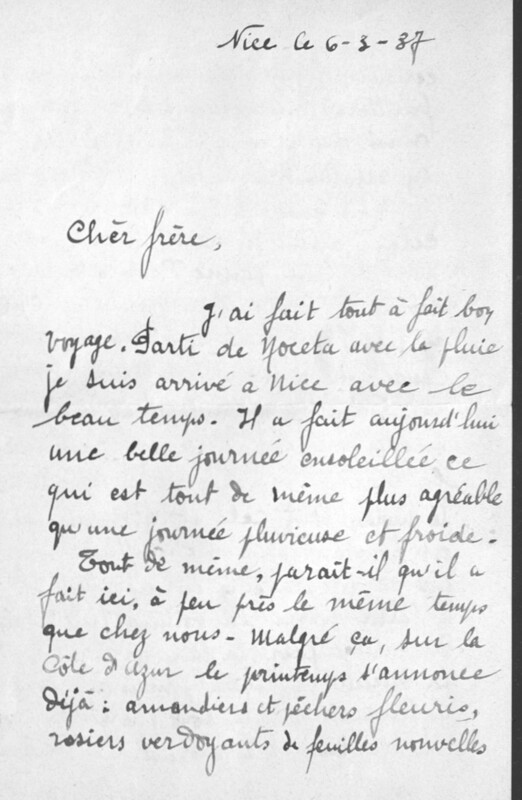 Nice le 6-3-37
Chèr frère,
J'ai fait tout à fait bon
voyage. Parti de Noceta avec la pluie
je suis arrivé à Nice avec le
beau temps. Il a fait aujourd'hui
une belle journée ensoleillée ce
qui est tout de même plus agréable
qu'une journée pluvieuse et froide.
Tout de même, parait-il qu'il a
fait ici, à peu près le même temps
que chez nous - Malgré ça, sur la
Côte d'Azur le printemps s'annonce
déjà : amandiers et pêchers fleuris,
rosiers verdoyants de feuilles nouvelles